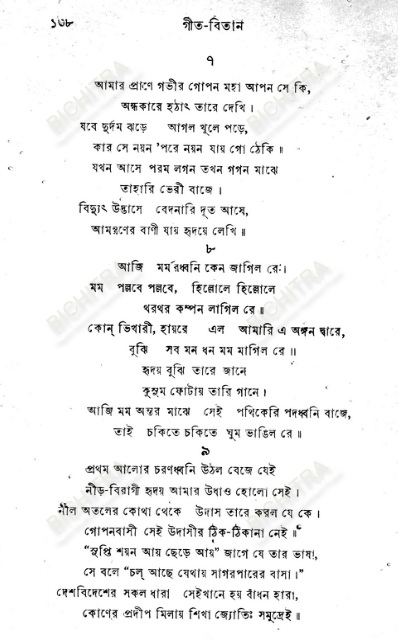 ১৩৮ গীত-বিতান
৭
আমার প্রাণে গভীর গোপন মহা আপন সে কি,
অন্ধকারে হঠাৎ তারে দেখি।
যবে দুর্দম ঝড়ে আগল খুলে পড়ে,
কার সে নয়ন 'পরে নয়ন যায় গো ঠেকি॥
যখন আসে পরম লগন তখন গগন মাঝে
তাহারি ভেরী বাজে।
বিদ্যুৎ উদ্ভাসে বেদনারি দূত আসে,
আমন্ত্রণের বাণী যায় হৃদয়ে লেখি॥
৮
আজি মর্মরধ্বনি কেন জাগিল রে।
মম পল্লবে পল্লবে, হিল্লোলে হিল্লোলে
থরথর কম্পন লাগিল রে॥
কোন্ ভিখারী, হায়রে এল আমারি এ অঙ্গন দ্বারে,
বুঝি সব মন ধন মম মাগিল রে॥
হৃদয় বুঝি তারে জানে
কুসুম ফোটায় তারি গানে।
আজি মম অন্তর মাঝে সেই পথিকেরি পদধ্বনি বাজে,
তাই চকিতে চকিতে ঘুম ভাঙিল রে॥
৯
প্রথম আলোর চরণধ্বনি উঠল বেজে যেই
নীড়-বিরাগী হৃদয় আমার উধাও হোলো সেই।
নীল অতলের কোথা থেকে উদাস তারে করল যে কে।
গোপনবাসী সেই উদাসীর ঠিক-ঠিকানা নেই॥
"সুপ্তি শয়ন আয় ছেড়ে আয়" জাগে যে তার ভাষা,
সে বলে "চল্ আছে যেথায় সাগরপারের বাসা।"
দেশবিদেশের সকল ধারা সেইখানে হয় বাঁধন হারা,
কোণের প্রদীপ মিলায় শিখা জ্যোতিঃ সমুদ্রেই॥
BICHITRA
BICHITRA
BICHITRA
BICHITRA
BICHITRA
BICHITRA